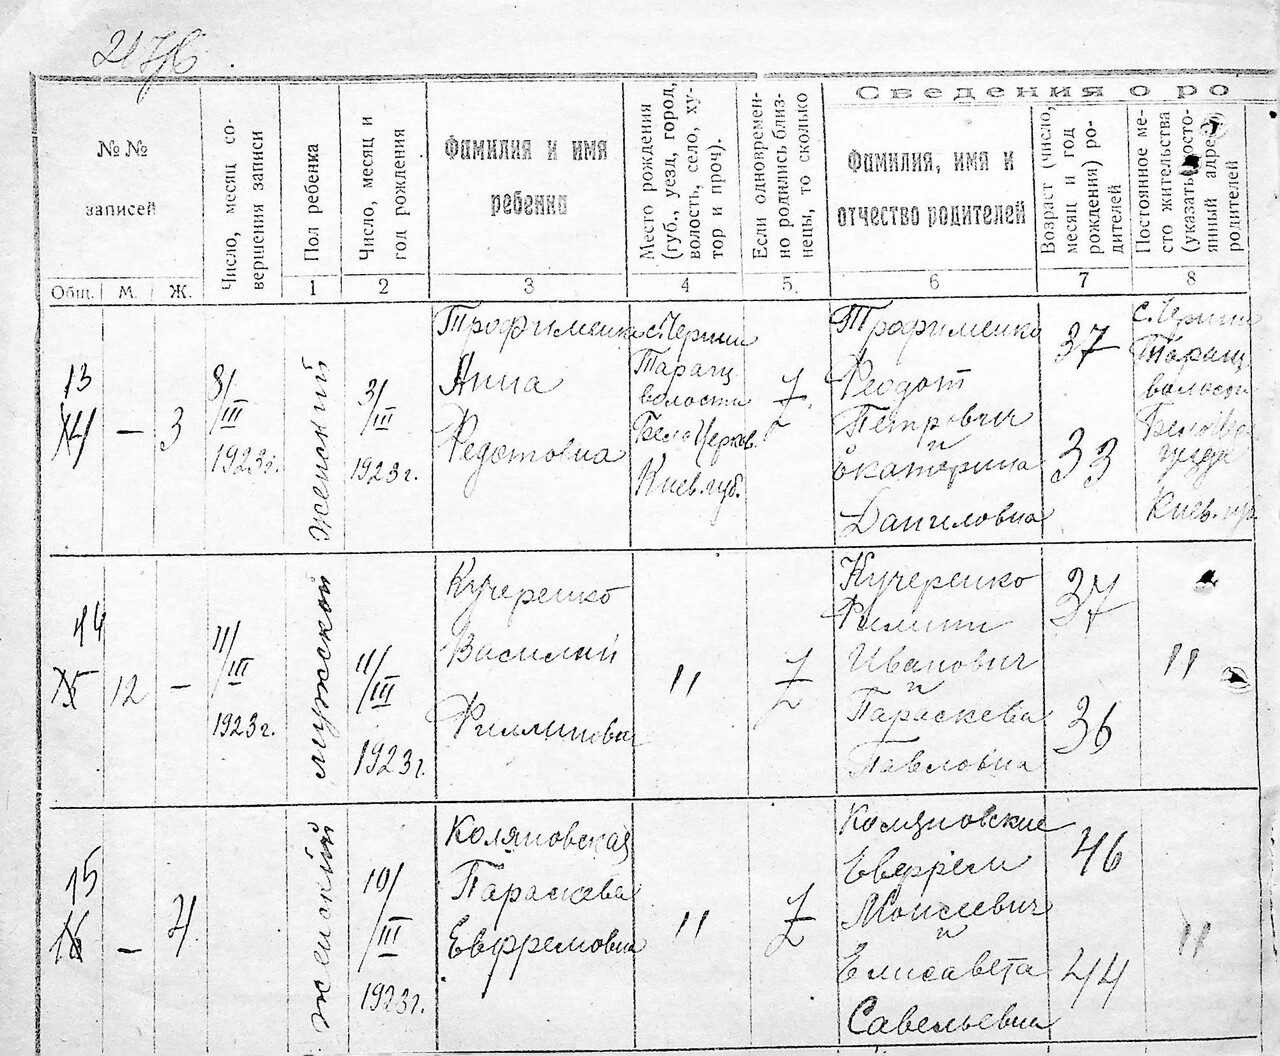 Сведения о ро
№№
записей
Общ.
М.
Ж.
Число, месяц со-
вершения записи
Пол ребенка
1
Число, месяц и
год рождения
2
Фамилия и имя
ребенка
3
Место рождения
(губ., уезд, город,
волость, село, ху-
тор и проч).
4
Если одновремен-
но родились близ-
нецы, то сколько
5.
Фамилия, имя и
отчество родителей
6
Возраст (число,
месяц и год
рождения) ро-
дителей
7
Постоянное ме-
сто жительства
(указать
янный адрес
родителей
8
13
14
—
3
8/III
1923г.
женский
3/III
1923г.
Трофименко
Анна
Федотовна
Таращ.
волости
Бело Церков.
Киев. губ.
Трофименко
Феодот
Петрович
и
Екатерина
Даниловна
37
33
Таращ.
волости
Киев.
14
15
12
—
11/III
1923г.
мужской
11/III
1923г.
Кучеренко
Василий
Филлипова
"
Кучеренко
Филипп
Иванович
и
Параскева
Павловна
37
36
"
15
16
—
4
женский
10/III
1923г.
Коляновская
Параскева
Евфремовна
"
Евфрем
Моисеевич
и
Елисавета
Савельевна
46
44
"